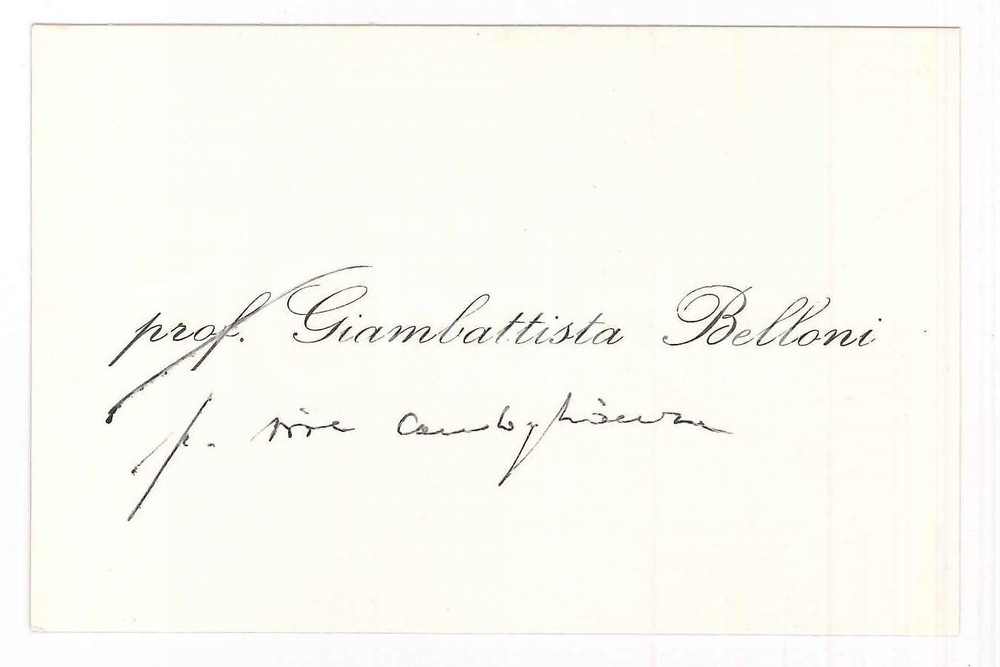 prof. Giambattista Belloni
p. vive condoglianze